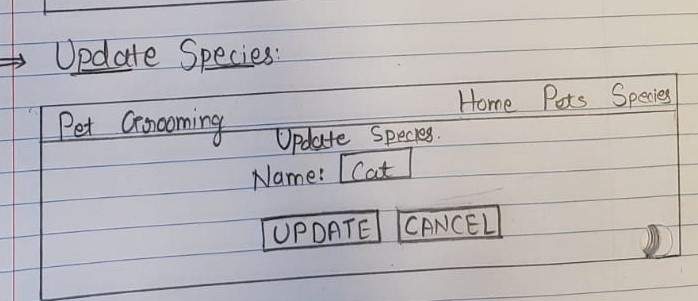 ⇒ Update Species:
Pet Grooming Home Pets Species
Update Species.
Name: Cat
UPDATE CANCEL